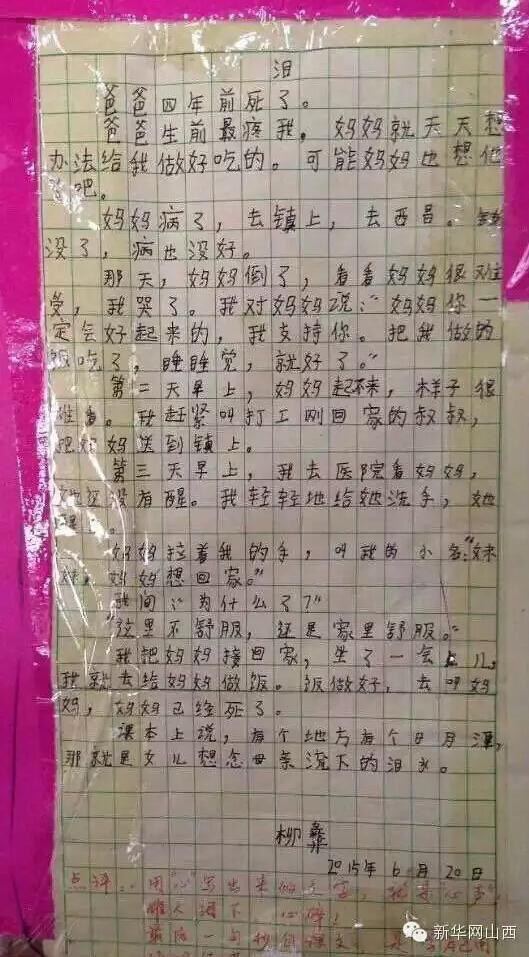 泪
爸爸四年前死了。
爸爸生前最疼我。妈妈就天天想
办法给我做好吃的。可能妈妈也想他
了吧。
妈妈病了，去镇上，去西昌。钱
没了，病也没好。
那天，妈妈倒了，看看妈妈很难
受，我哭了。我对妈妈说：“妈妈你一
定会好起来的，我支持你。把我做的
饭吃了，睡睡觉，就好了。”
第二天早上，妈妈起不来，样子很
难看。我赶紧叫打工刚回家的叔叔，
把妈妈送到镇上。
第三天早上，我去医院看妈妈，
她还没有醒。我轻轻地给她洗手，她
醒了。
妈妈拉着我的手，叫我的小名：“妹
妹，妈妈想回家。”
我问：“为什么了？”
“这里不舒服，还是家里舒服。”
我把妈妈接回家，坐了一会儿，
我就去给妈妈做饭。饭做好，去叫妈
妈，妈妈已经死了。
课本上说，有个地方有个日月潭，
那就是女儿想念母亲流下的泪水。
柳彝
2015年6月20日
点评：用“心”写出来的文字，就是“心声”，
催人泪下 心碎！
最后一句抄自课文，是
新华网山西